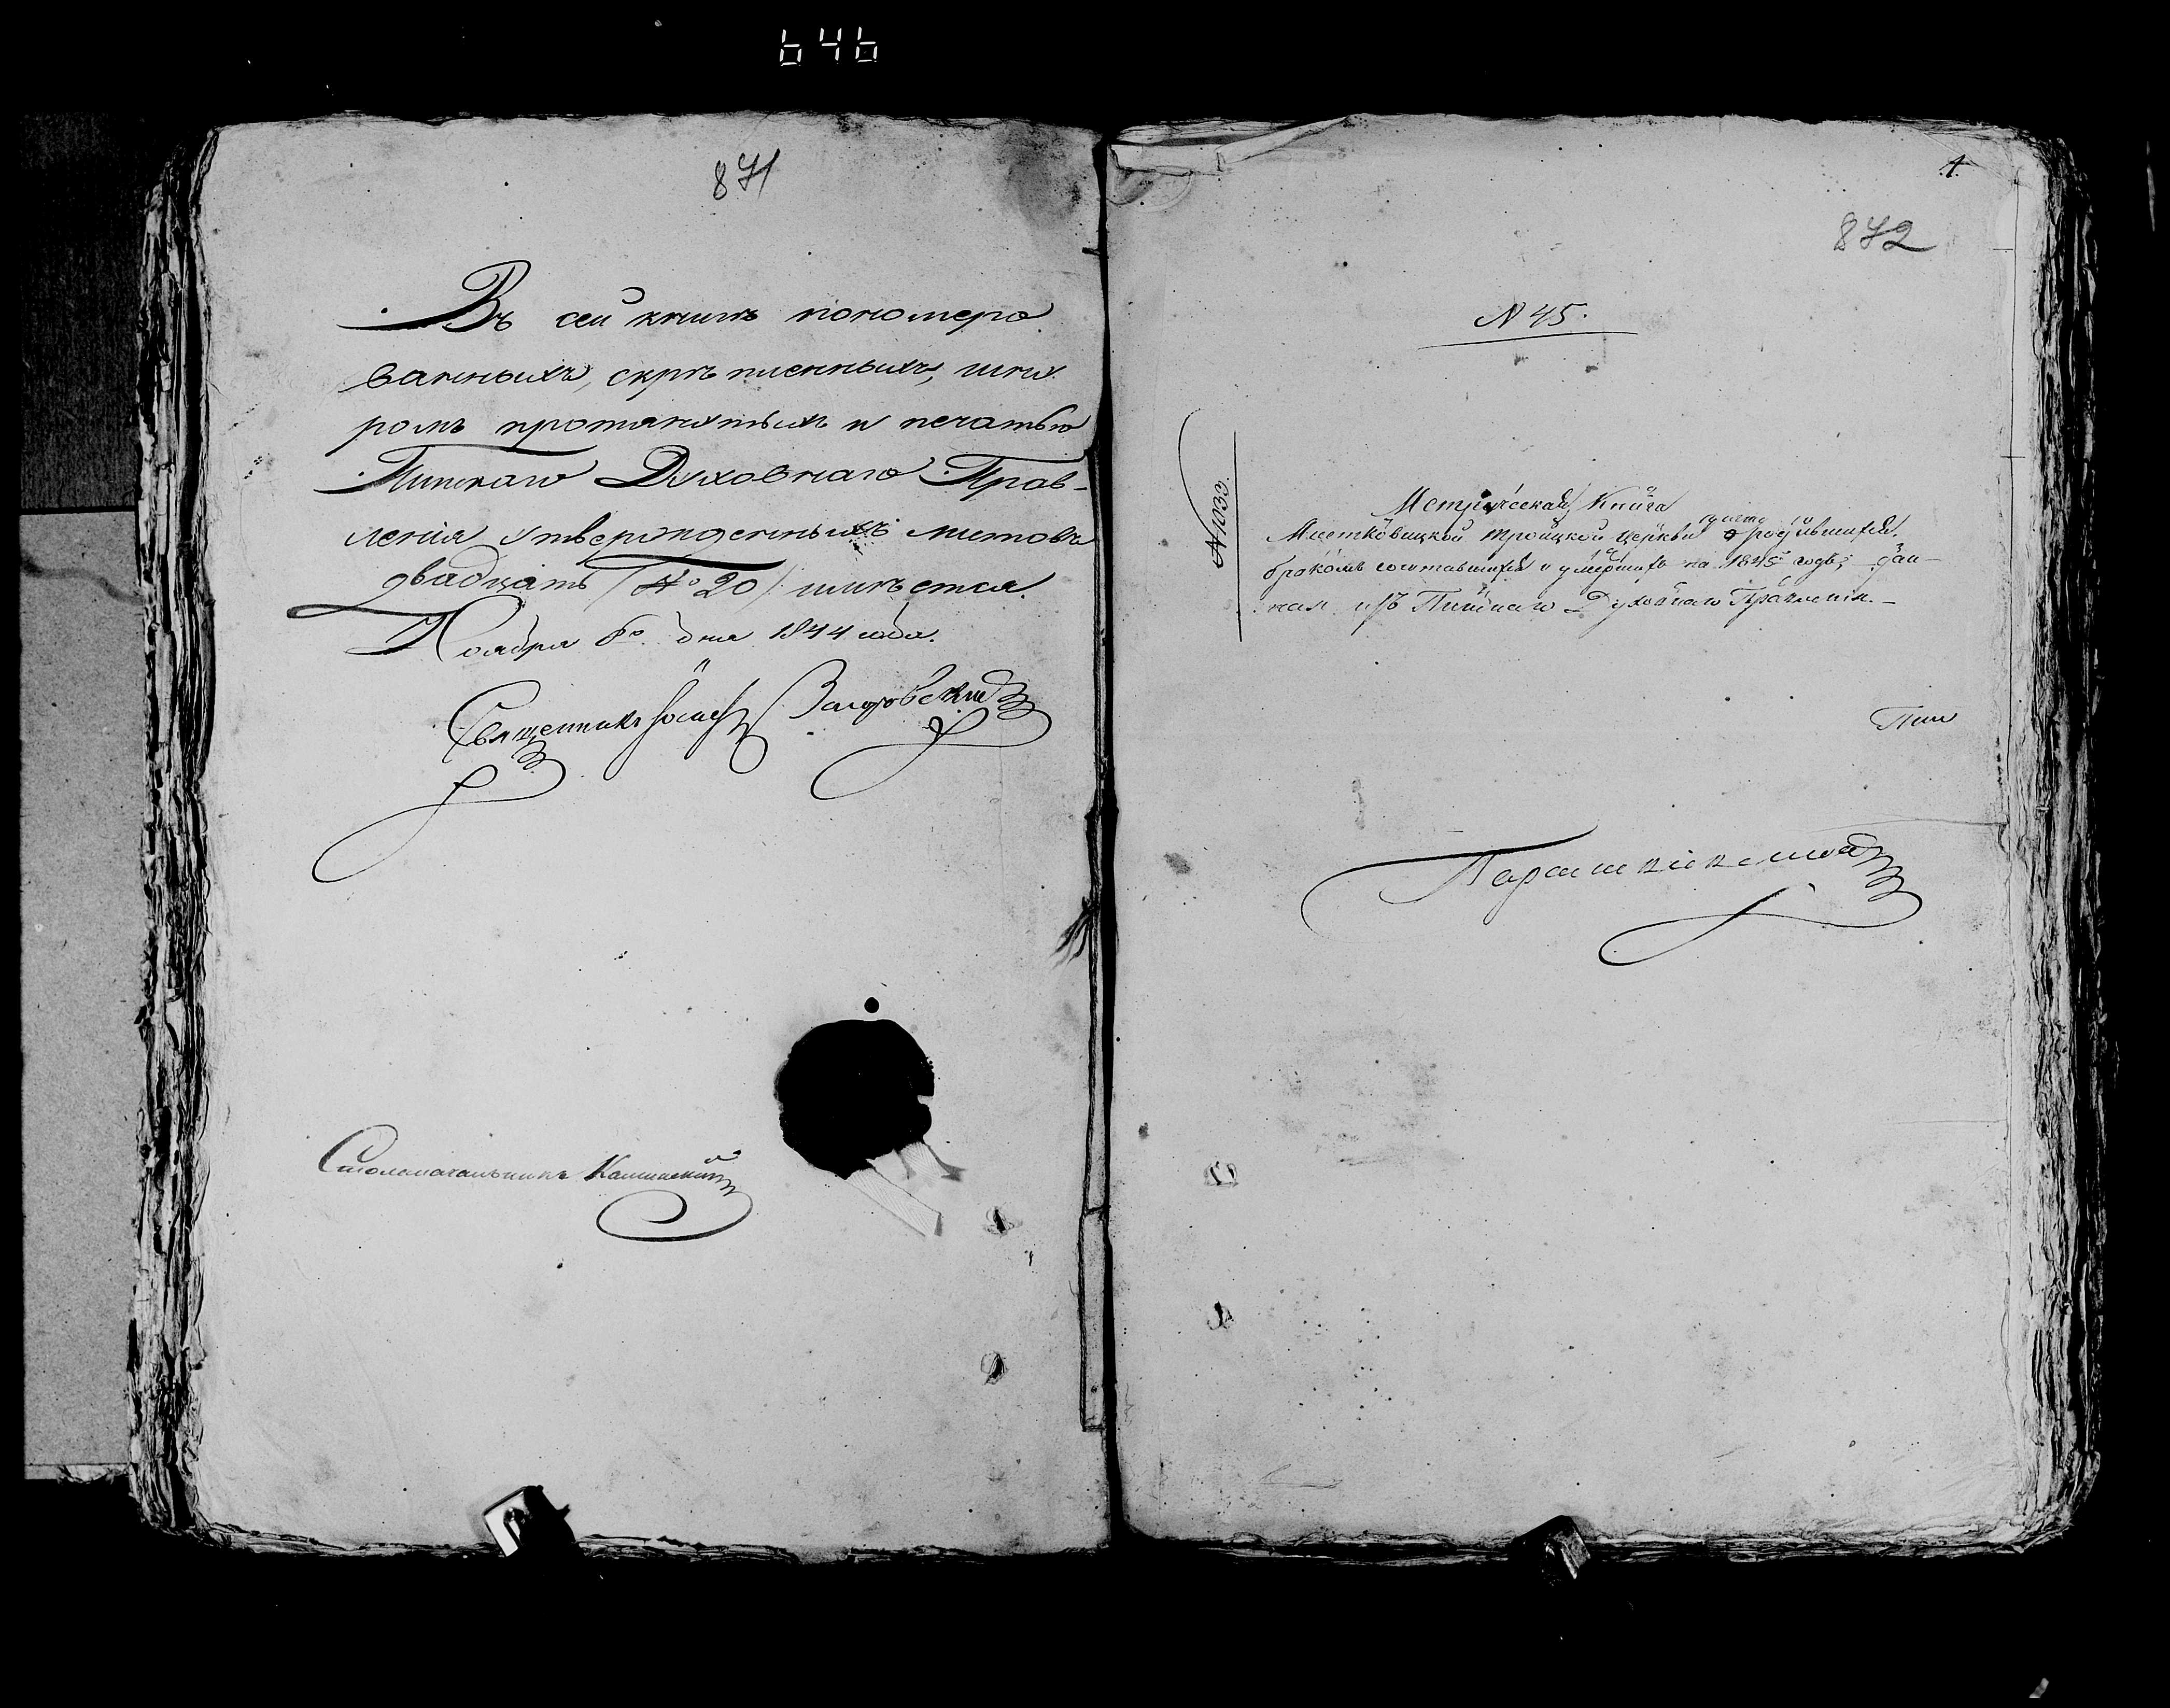 646
871
Въ сей книгѣ пономеро
ванныхъ, скрѣпленныхъ, шну
ромъ протянутыхъ и печатью
Пинскаго Духовнаго Прав-
ленія утвержденныхъ листовъ
двадцать /№ 20/ имѣется.
Ноября 8го дня 1844 года.
Священникъ Іосифъ
Столоначальникъ Калинскій
1.
872
N 45.
№ 1033.
Метрическая Книга
Мѣстковицкой Троицкой церкви о родившихся,
бракомъ сочетавшихся и умершихъ на 1845й годъ; дан-
ная изъ Пинскаго Духовнаго Правленія.—
Пин